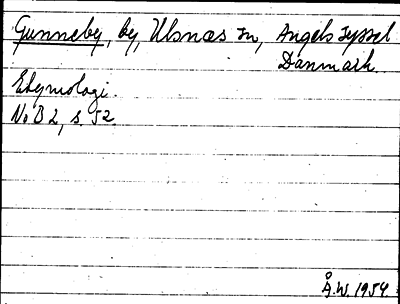 Gunneby, by, Ulsnæs sn, Angels syssel
Danmark.
Etymologi.
NoB 2, s. 52
Å.W. 1954.